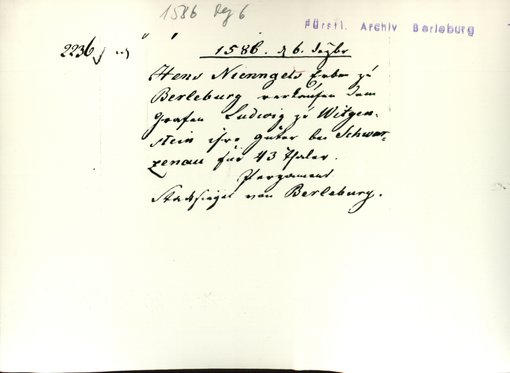 1586 Dez 6
Fürstl. Archiv Berleburg
2236
1586. d 6. Dezbr
Hens Nienngels Erben zu
Berleburg verkaufen dem
Grafen Ludwig zu Witgen-
stein ihre güter bei Schwar-
zenau für 43 thaler.
Pergament
Stadtsiegel von Berleburg.